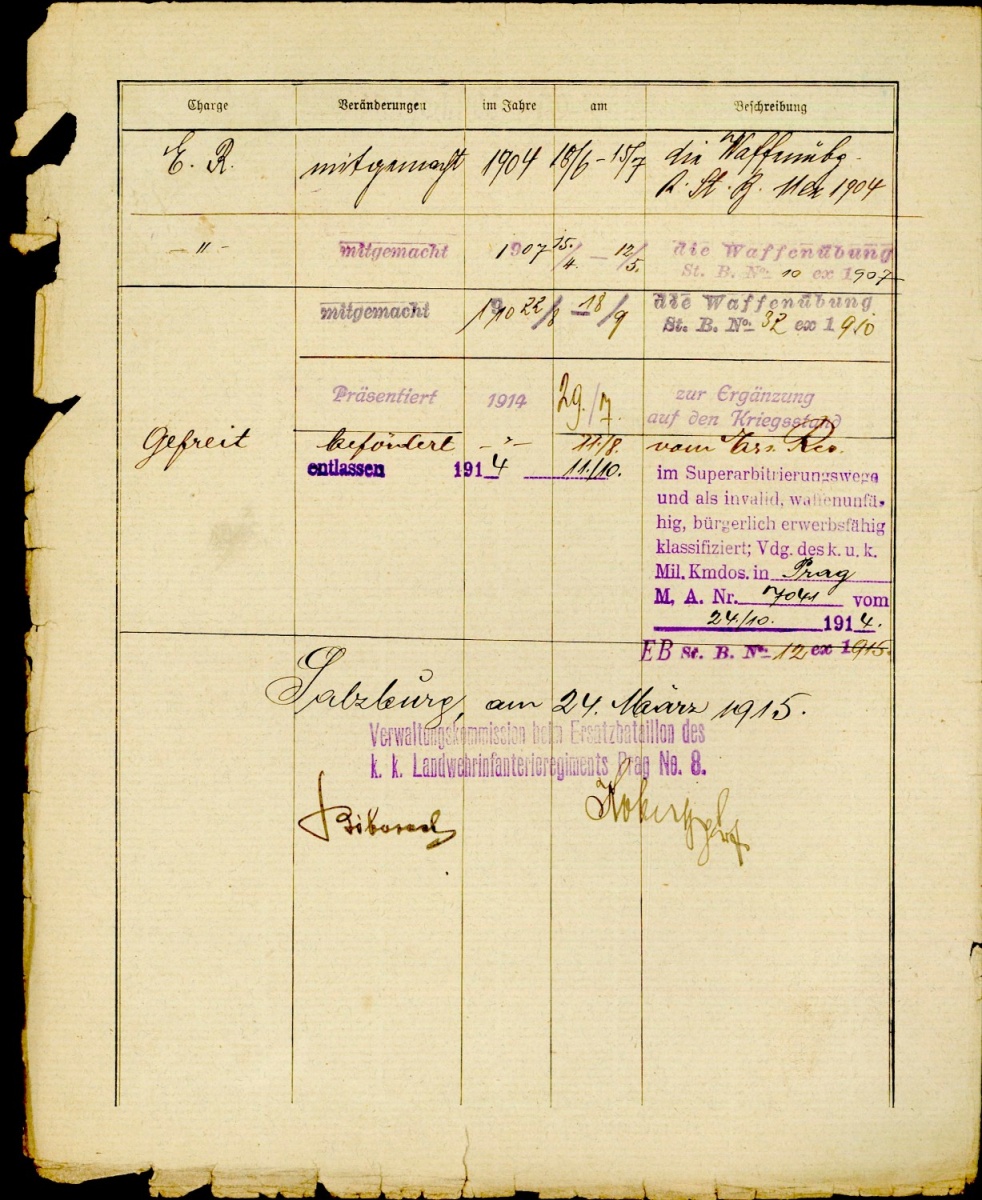 Charge Veränderungen im Jahre am Beschreibung
E. R. mitgemacht 1904 18/6 - 15/7 die Waffenübg.
St. B. 1904
- " - mitgemacht 1907 15./4. - 12/5. die Waffenübung
St. B. No: 10 ex 1907
mitgemacht 1910 22/8 - 18/9 die Waffenübung
St. B. No: 32 ex 1910
Präsentiert 1914 29./7. zur Ergänzung
auf den Kriegsstand
Gefreit befördert - " - 11./8. vom Ers. Res.
entlassen 1914 11./10. im Superarbitrierungswege
und als invalid, waffenunfä-
hig, bürgerlich erwerbsfähig
klassifiziert; Vdg. des k. u. k.
Mil. Kmdos. in Prag
M. A. Nr. 7041 vom
24./10. 1914.
EB St. B. No: 12 ex 1915.
Salzburg, am 24. März 1915.
Verwaltungskommission beim Ersatzbataillon des
k. k. Landwehrinfanterieregiments Prag No. 8.